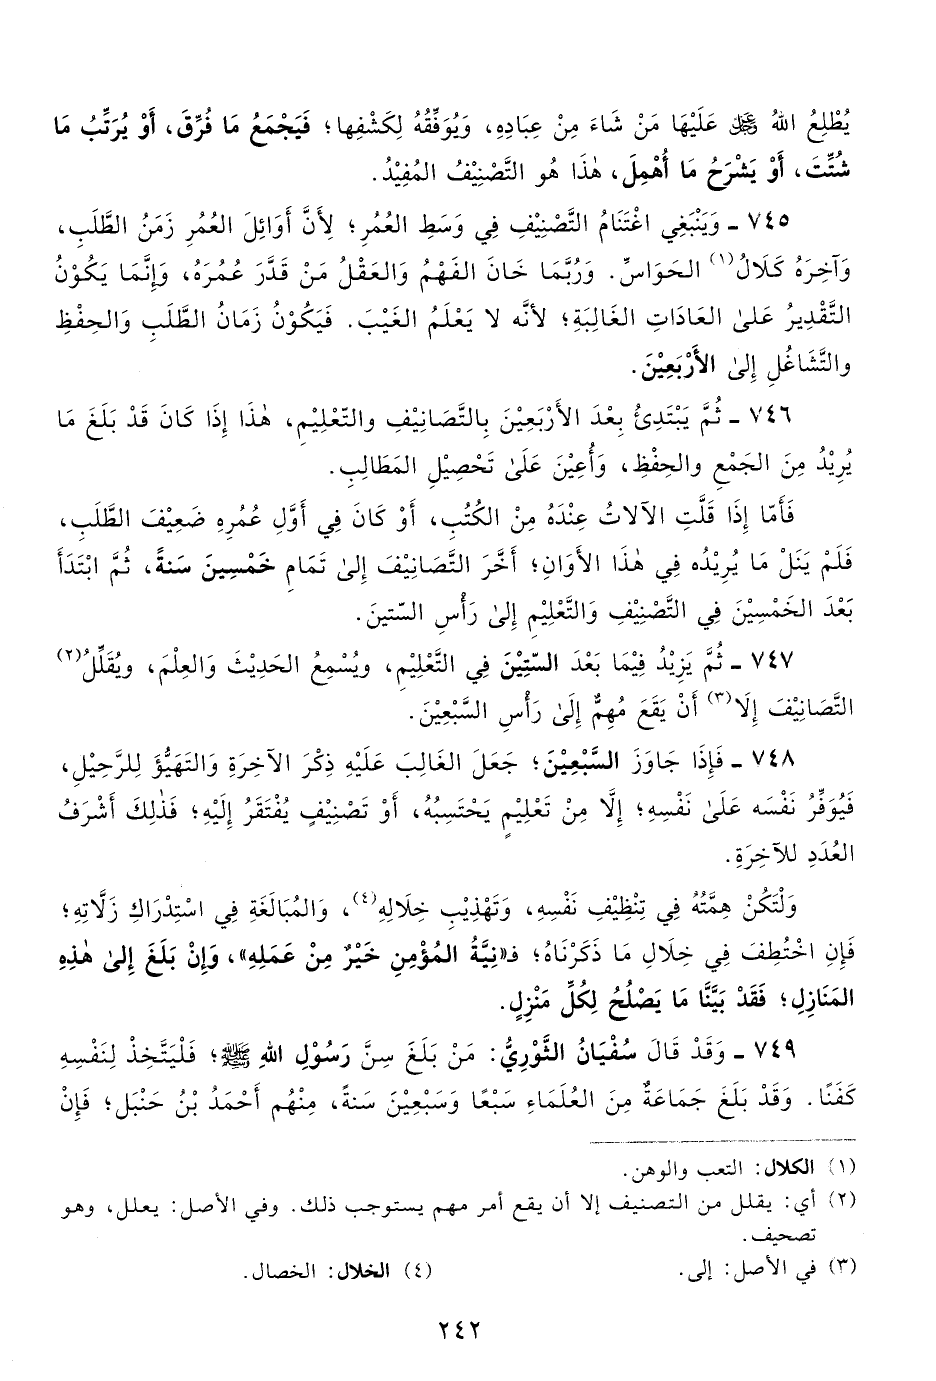 يُطْلِعُ اللهُ ﷻ عَلَيْهَا مَنْ شَاءَ مِنْ عِبَادِهِ، وَيُوَفِّقُهُ لِكَشْفِها؛ فَيَجْمَعُ مَا فُرِّقَ، أَوْ يُرَتِّبُ مَا
شُتِّتَ، أَوْ يَشْرَحُ مَا أُهْمِلَ، هٰذَا هُو التَّصْنِيْفُ المُفِيْدُ.
٧٤٥ - وَيَنْبَغِي اغْتَنَامُ التَّصْنِيْفِ فِي وَسَطِ العُمُرِ؛ لِأَنَّ أَوَائِلَ العُمُرِ زَمَنُ الطَّلَبِ،
وَآخِرَهُ كَلَالُ(١) الحَوَاسِّ. وَرُبَّمَا خَانَ الفَهْمُ وَالعَقْلُ مَنْ قَدَّرَ عُمُرَهُ، وَإِنَّمَا يَكُوْنُ
التَّقْدِيرُ عَلىٰ العَادَاتِ الغَالِبَةِ؛ لأنَّه لا يَعْلَمُ الغَيْبَ. فَيَكُوْنُ زَمَانُ الطَّلَبِ وَالحِفْظِ
والتَّشَاغُلِ إِلىٰ الأَرْبَعِيْنَ.
٧٤٦ - ثُمَّ يَبْتَدِئُ بَعْدَ الأَرْبَعِيْنَ بِالتَّصَانِيْفِ والتَّعْلِيْمِ، هٰذَا إِذَا كَانَ قَدْ بَلَغَ مَا
يُرِيْدُ مِنَ الجَمْعِ والحِفْظِ، وَأُعِيْنَ عَلَىٰ تَحْصِيْلِ المَطَالِبِ.
فَأَمَّا إِذَا قَلَّتِ الآلاتُ عِنْدَهُ مِنَ الكُتُبِ، أَوْ كَانَ فِي أَوَّلِ عُمُرِهِ ضَعِيْفَ الطَّلَبِ،
فَلَمْ يَنَلْ مَا يُرِيْدُه فِي هٰذَا الأَوَانِ؛ أَخَّرَ التَّصَانِيْفَ إِلىٰ تَمَامِ خَمْسِينَ سَنةً، ثُمَّ ابْتَدَأَ
بَعْدَ الخَمْسِيْنَ فِي التَّصْنِيْفِ وَالتَّعْلِيْمِ إِلىٰ رَأْسِ السّتينَ.
٧٤٧ - ثُمَّ يَزِيْدُ فِيْمَا بَعْدَ السّتِّيْنَ فِي التَّعْلِيْمِ، ويُسْمِعُ الحَدِيْثَ وَالعِلْمَ، ويُقَلِّلُ(٢)
التَّصَانِيْفَ إِلَا(٣) أَنْ يَقَعَ مُهِمٌّ إِلَىٰ رَأْسِ السَّبْعِيْنَ.
٧٤٨ - فَإِذَا جَاوَزَ السَّبْعِيْنَ؛ جَعَلَ الغَالِبَ عَلَيْهِ ذِكْرَ الآخِرَةِ وَالتَهَيُّؤَ لِلرَّحِيْلِ،
فَيُوَفِّرُ نَفْسَه عَلَىٰ نَفْسِهِ؛ إِلَّا مِنْ تَعْلِيْمٍ يَحْتَسِبُهُ، أَوْ تَصْنِيْفٍ يُفْتَقَرُ إِلَيْهِ؛ فَذٰلِكَ أَشْرَفُ
العُدَدِ للآخِرَةِ.
وَلْتَكُنْ هِمَّتُهُ فِي تنْظِيْفِ نَفْسِهِ، وَتَهْذِيْبِ خِلَالِهِ(٤)، وَالمُبَالَغَةِ فِي اسْتِدْرَاكِ زَلَّاتِهِ؛
فَإِنِ اخْتُطِفَ فِي خِلَالِ مَا ذَكَرْنَاهُ؛ فـ«نِيَّةُ المُؤْمِنِ خَيْرٌ مِنْ عَمَلِهِ»، وَإِنْ بَلَغَ إِلىٰ هٰذِهِ
المَنَازِلِ؛ فَقَدْ بَيَّنَّا مَا يَصْلُحُ لِكُلِّ مَنْزِلٍ.
٧٤٩ - وَقَدْ قَالَ سُفْيَانُ الثَّوْرِيُّ: مَنْ بَلَغَ سِنَّ رَسُوْلِ اللهِ ﷺ؛ فَلْيَتَّخِذْ لِنَفْسِهِ
كَفَنًا. وَقَدْ بَلَغَ جَمَاعَةٌ مِنَ العُلَمَاءِ سَبْعًا وَسَبْعِيْنَ سَنةً، مِنْهُم أَحْمَدُ بْنُ حَنْبَل؛ فَإِنْ
(١) الكلال: التعب والوهن.
(٢) أي: يقلل من التصنيف إلا أن يقع أمر مهم يستوجب ذلك. وفي الأصل: يعلل، وهو
تصحيف.
(٣) في الأصل: إلى. (٤) الخلال: الخصال.
٢٤٢